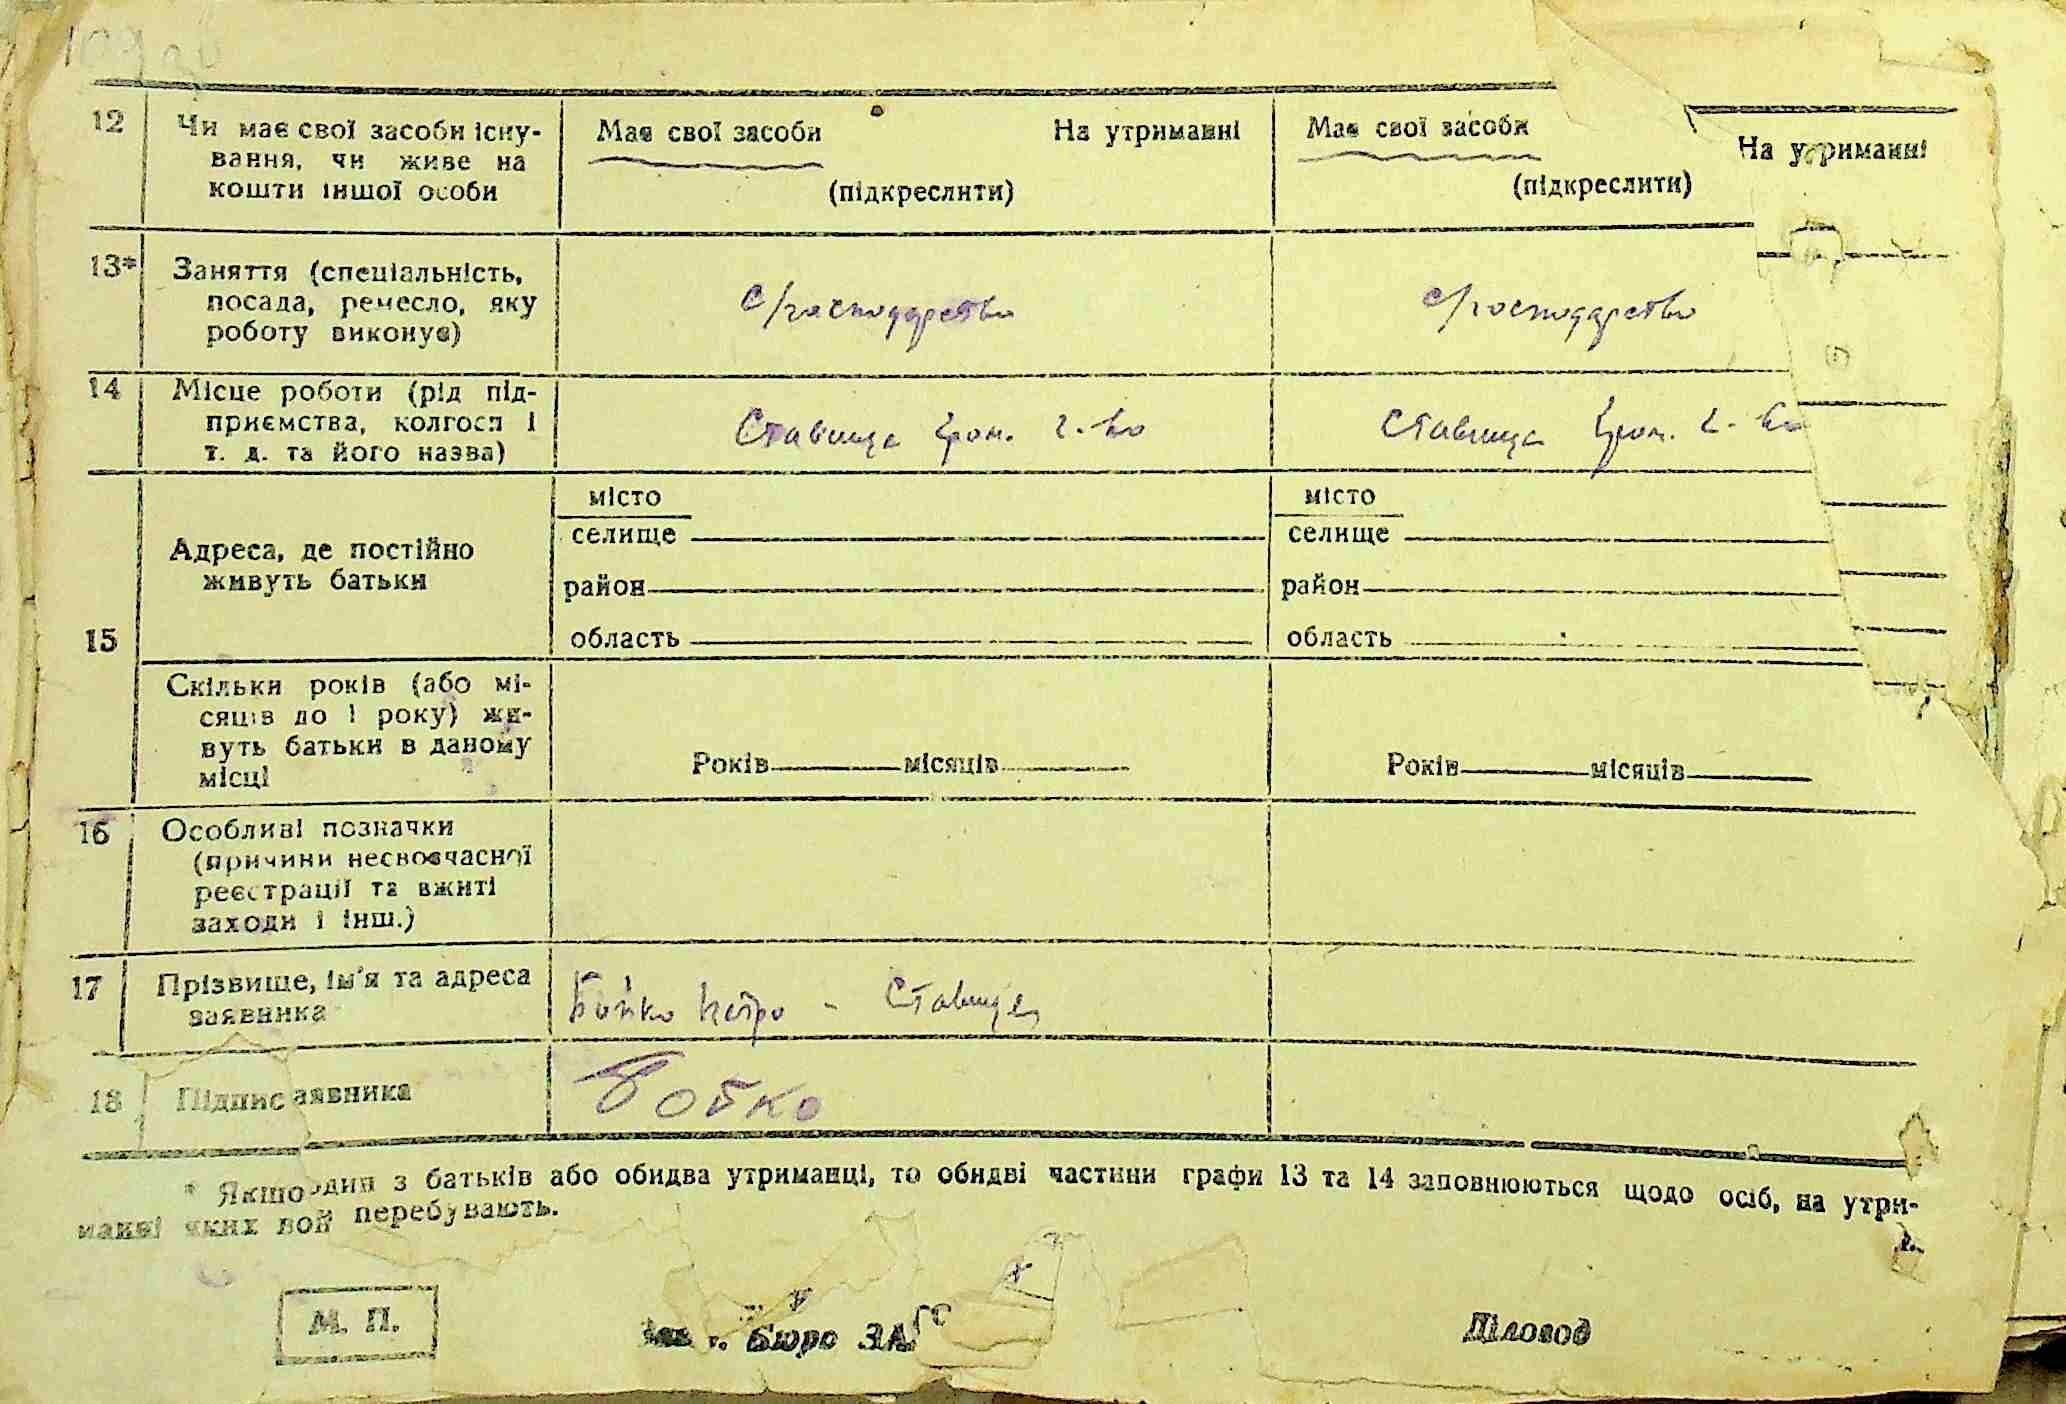 12
Чи має свої засоби існу-
вання, чи живе на
кошти іншої особи
Має свої засоби На утриманні
(підкреслити)
Має свої засоби На утриманні
(підкреслити)
13*
Заняття (спеціальність,
посада, ремесло, яку
роботу виконує)
с/господарство
с/господарство
14
Місце роботи (рід під-
приємства, колгосп і
т. д. та його назва)
Ставище гром. г-во
Ставище гром. г-во
15
Адреса, де постійно
живуть батьки
місто
селище
район
область
місто
селище
район
область
Скільки років (або мі-
сяців до 1 року) жи-
вуть батьки в даному
місці
Років місяців
Років місяців
16
Особливі позначки
(причини несвоєчасної
реєстрації та вжиті
заходи і інш.)
17
Прізвище, ім'я та адреса
заявника
Бойко Петро - Ставище
18
Підпис заявника
Бойко
* Якщо один з батьків або обидва утриманці, то обидві частини графи 13 та 14 заповнюються щодо осіб, на утри-
манні яких вони перебувають.
М. П.
Бюро ЗАГС
Діловод